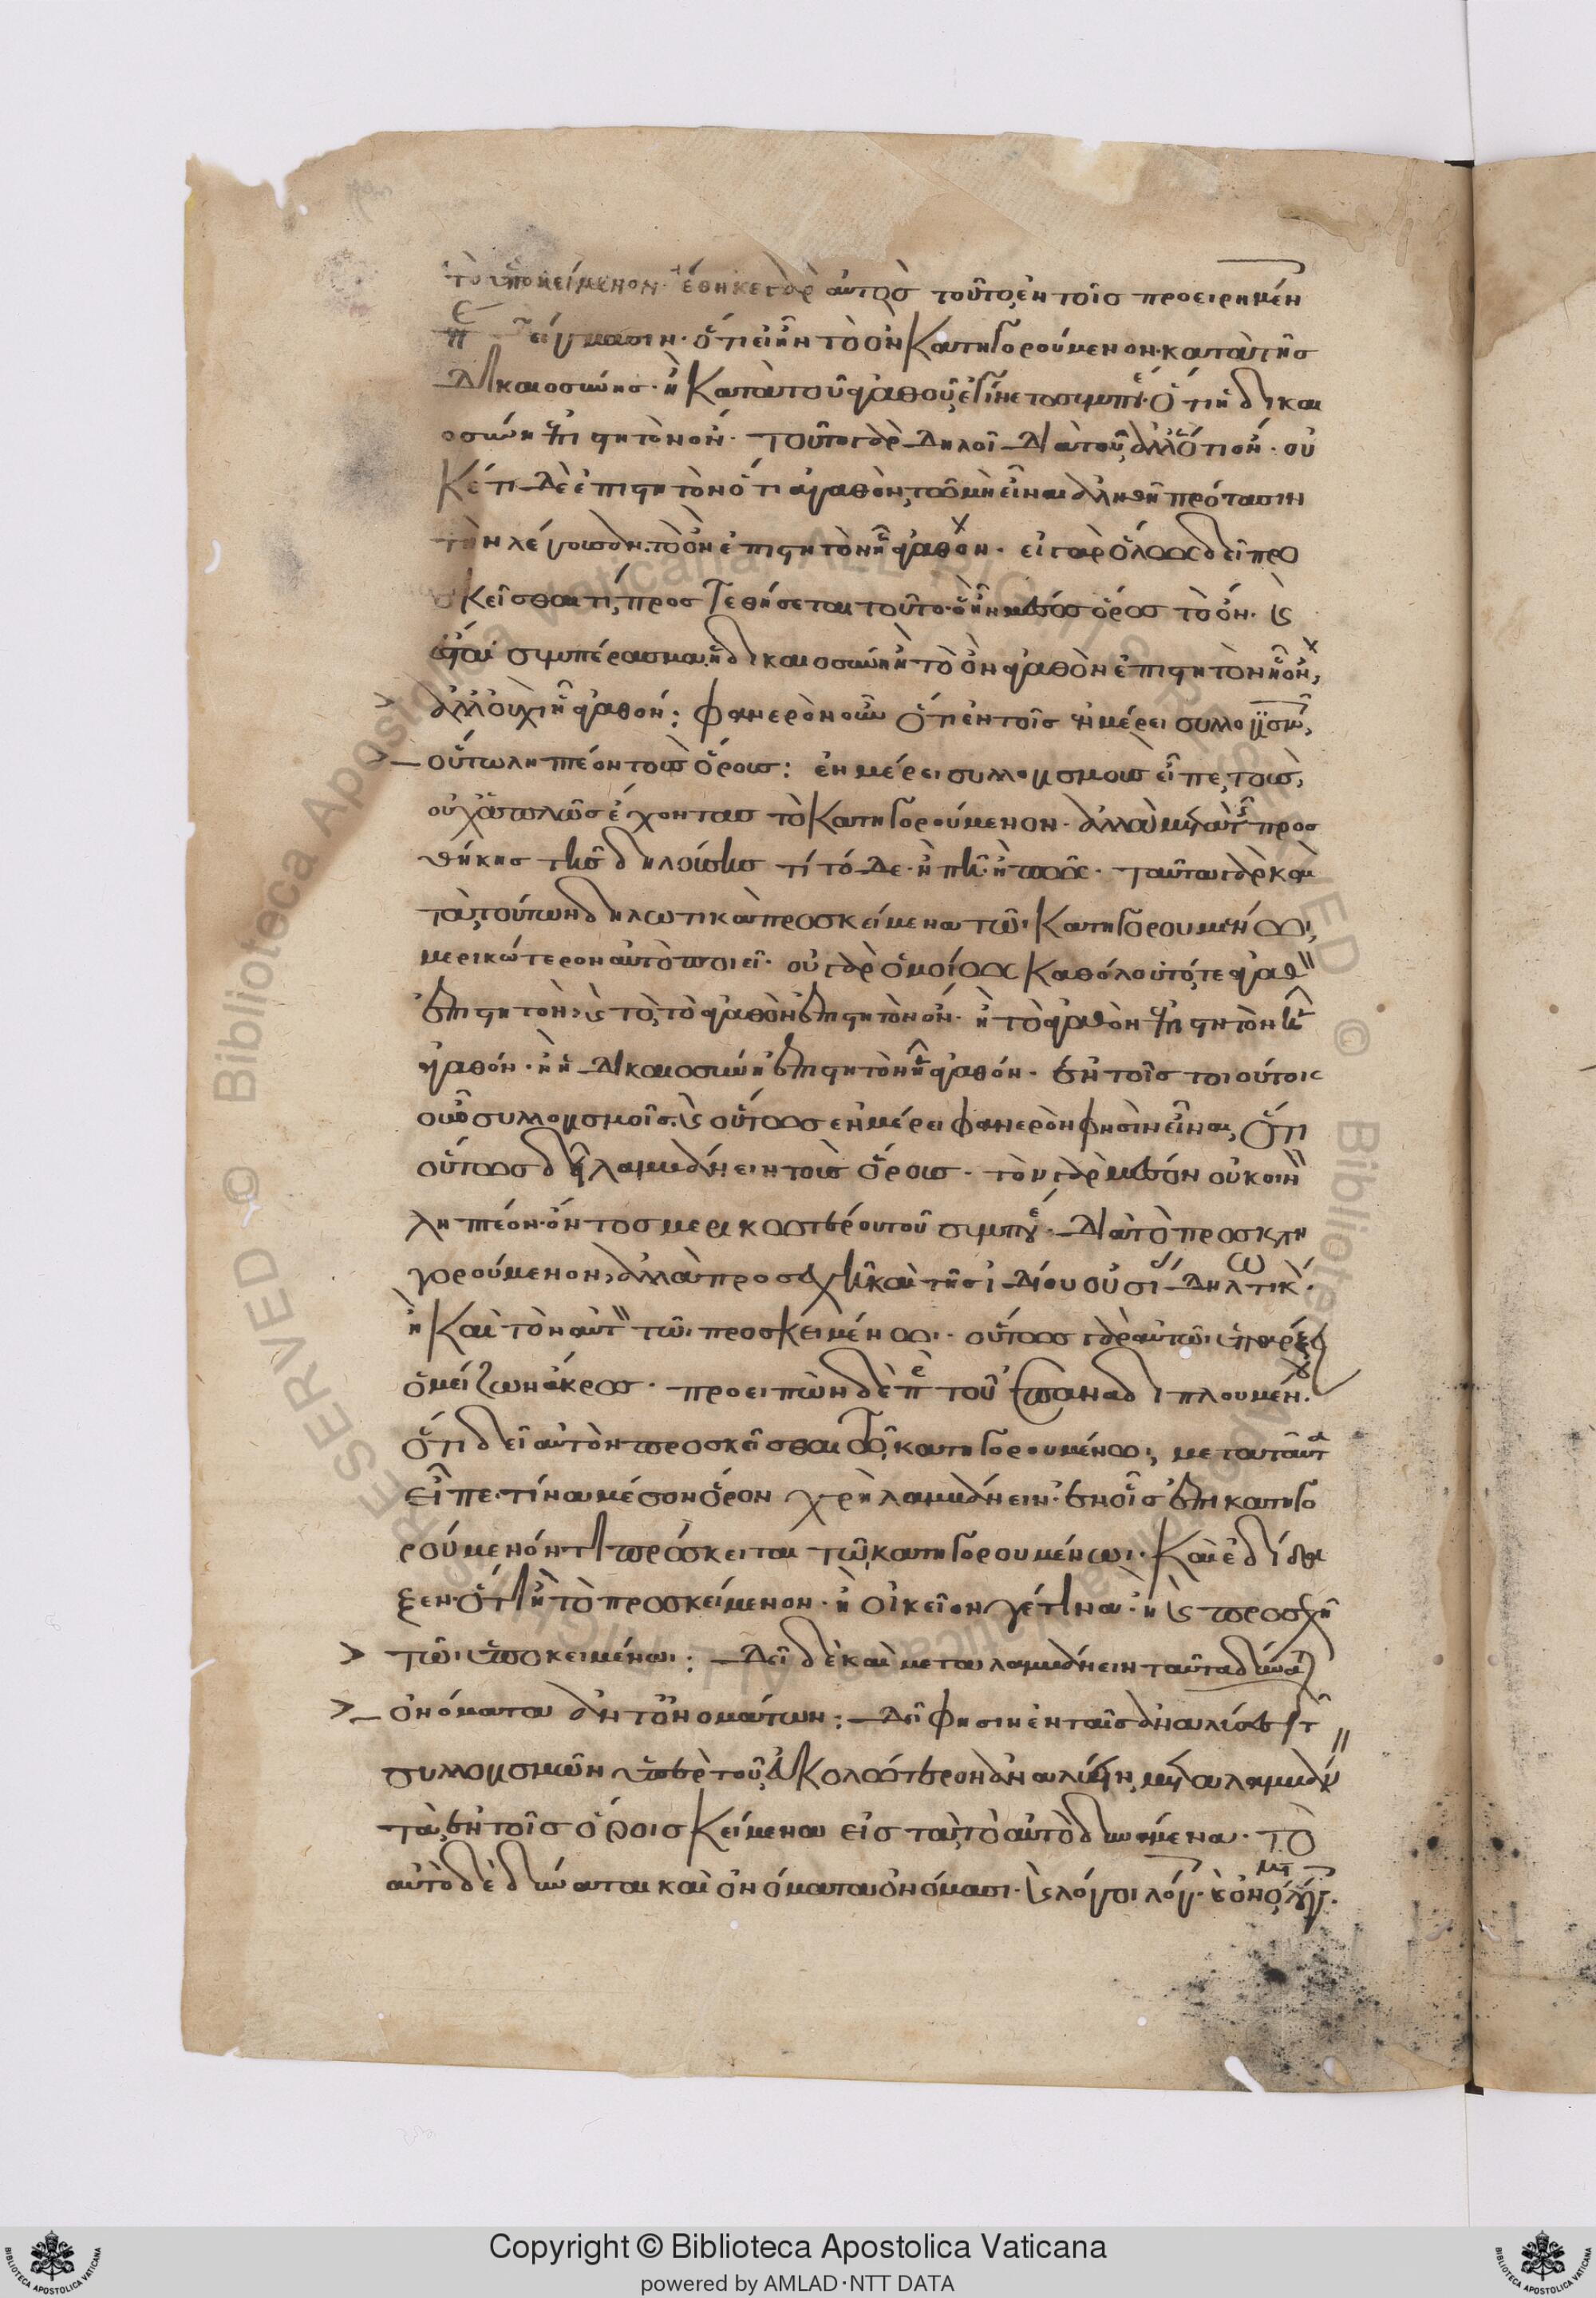 τὸ ὑποκείμενον· ἔθηκε γὰρ αὐτὸς τοῦτο ἐν τοῖς προειρημέν
π δείγμασιν· ὅτι εἰ ἦν τὸ ὂν κατηγορούμενον· κατὰ τῆς
δικαιοσύνης· ἢ κατὰ τοῦ ἀγαθοῦ, ἐγίνετο συμπέ· ὅτι ἡ δικαι
οσύνη ἐπιστητὸν ὄν· τοῦτο γὰρ δηλοῖ διὰ τοῦ, ἀλλ' ὅτι ὄν· οὐ
κέτι δὲ ἐπιστητὸν ὅτι ἀγαθὸν, τῶ μὴ εἶναι ἀληθῆ πρότασιν
τὴν λέγουσαν· τὸ ὂν ἐπιστητὸν ἧ ἀγαθόν· εἰ γὰρ ὅλως δεῖ προ
σκεῖσθαί τι, προστεθήσεται τοῦτο· ὃ ἦν μέσος ὅρος τὸ ὄν· καὶ
ἔσται συμπέρασμα, ἡ δικαιοσύνη ἢ τὸ ὂν ἀγαθὸν ἐπιστητὸν ἧ ὄν,
ἀλλ' οὐχὶ ἧ ἀγαθόν: φανερὸν οὖν ὅτι ἐν τοῖς ἐν μέρει συλλογισμ,
οὕτω ληπτέον τοὺς ὅρους: ἐν μέρει συλλογισμοὺς εἶπε, τοὺς,
οὐχ ἁπλῶς ἔχοντας τὸ κατηγορούμενον· ἀλλὰ μετά τ προσ
θήκης τῆς δηλούσης τί τόδε· ἢ πῆ· ἢ πῶς· ταῦτα γὰρ καὶ
τὰ, τούτων δηλωτικὰ προσκείμενα τῶι κατηγορουμένωι,
μερικώτερον αὐτὸ ποιεῖ· οὐ γὰρ ὁμοίως καθόλου τό, τε ἀγαθ
ἐπιστητὸν, καὶ τὸ, τὸ ἀγαθὸν ἐπιστητὸν ὄν· ἢ τὸ ἀγαθὸν ἐπιστητὸν ἧ
ἀγαθόν· ἢ ἡ δικαιοσύνη ἐπιστητὸν ἧ ἀγαθόν· ἐν τοῖς τοιούτοις
οὖν συλλογισμοῖς, καὶ οὕτως ἐν μέρει φανερὸν φησὶν εἶναι, ὅτι
οὕτως δεῖ λαμβάνειν τοὺς ὅρους· τὸν γὰρ μέσον οὐ κοινὸν
ληπτέον· ὄντος μερικωτέρου τοῦ συμπέ· διὰ τὸ προσκατη
γορούμενον, ἀλλὰ προσεχῆ καὶ τῆς ἰδίου οὐσί δηλωτικ·
ἢ καὶ τὸν αὐτὸν τῶι προσκειμένωι· οὕτως γὰρ αὐτῶι ὑπάρξει
ὁ μείζων ἄκρος· προειπὼν δὲ π τοῦ ἐπαναδιπλουμέν·
ὅτι δεῖ αὐτὸν προσκεῖσθαι τῶι κατηγορουμένωι, μετὰ ταῦτα
εἶπε· τίνα μέσον ὅρον χρὴ λαμβάνειν· ἐν οἷς ἐπικατηγο
ρούμενόν τι πρόσκειται τῶι κατηγορουμένωι· καὶ ἐδίδα
ξεν· ὅτι ἢ τὸ προσκείμενον· ἢ οἰκεῖόν γέ τινα· ἢ καὶ προσεχῆ
τῶι ὑποκειμένωι: δεῖ δὲ καὶ μεταλαμβάνειν ταῦτα δύναται
ὀνόματα ἀντ' ὀνομάτων: δεῖ φησιν ἐν ταῖς ἀναλύσεσι τ
συλλογισμῶν ὑπὲρ τοῦ, εὐκολώτερον ἀναλύειν, μεταλαμβάν
τὰ, ἐν τοῖς ὅροις κείμενα εἰς τὰ, τὸ αὐτὸ δυνάμενα· τὸ
αὐτὸ δὲ δύναται καὶ ὀνόματα ὀνόμασι· καὶ λόγοι λόγ· καὶ ὀνόμ λόγ·
Copyright © Biblioteca Apostolica Vaticana
powered by AMLAD·NTT DATA